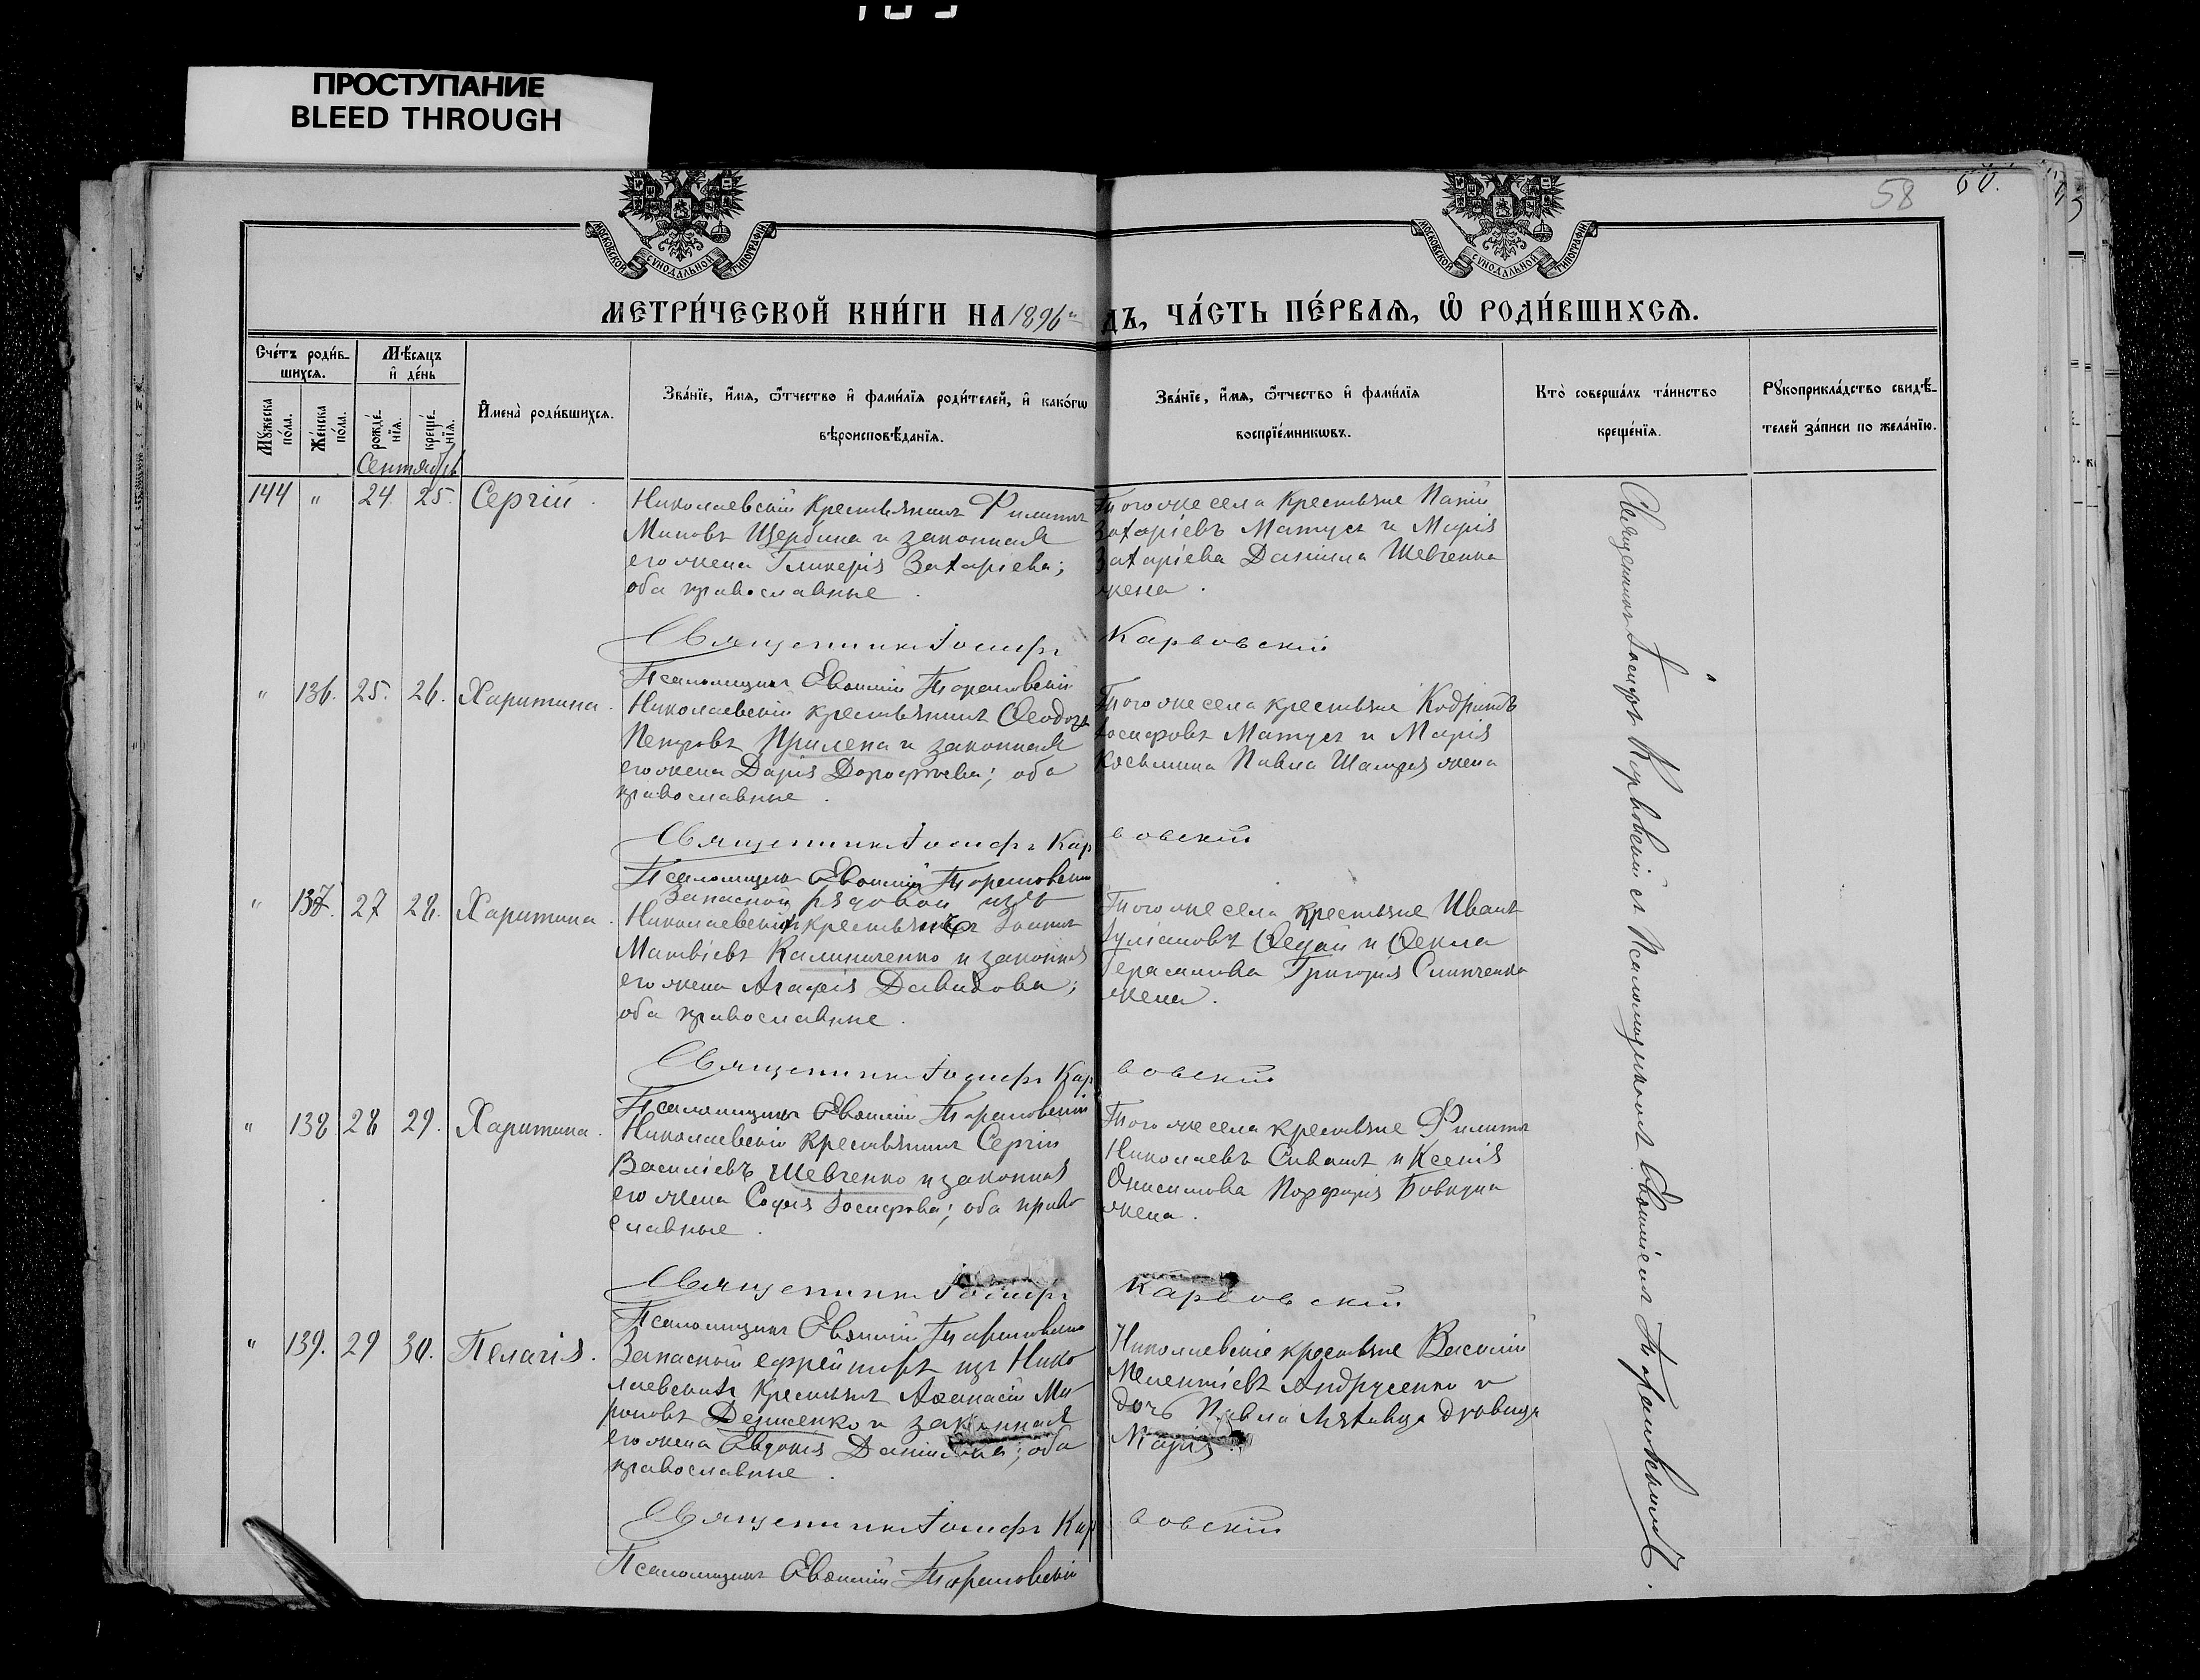 ПРОСТУПАНИЕ
BLEED THROUGH
58
60.
МОСКОВСКОЙ СУНОДАЛЬНОЙ ТИПОГРАФІИ
МОСКОВСКОЙ СУНОДАЛЬНОЙ ТИПОГРАФІИ
МЕТРИ́ЧЕСКОЙ КНИ́ГИ НА 1896 ДЪ, ЧА́СТЬ ПЕ́РВАѦ, Ѽ РОДИ́ВШИХСѦ.
Сче́тъ роди́в-
шихсѧ.
Мꙋжеска по́ла.
Же́нска по́ла.
Мѣ́сѧцъ
и҆ де́нь
рожде́нїѧ.
креще́нїѧ.
И҆мена̀ роди́вшихсѧ.
Зва́нїе, и҆́мѧ, ѻ҆́тчество и҆ фами́лїѧ роди́телей, и҆ како́гѡ
вѣроисповѣ́данїѧ.
Зва́нїе, и҆́мѧ, ѻ҆́тчество и҆ фами́лїѧ
воспрїе́мникѡвъ.
Кто̀ соверша́лъ та́инство
креще́нїѧ.
Рꙋкоприкла́дство свидѣ́-
телей за́писи по жела́нїю.
Сентябрь
144 " 24. 25. Сергій.
Николаевскій крестьянинъ Филиппъ
Миновъ Щербина и законная
его жена Гликерія Захаріева;
оба православные.
Тогоже села крестьяне Папій
Захаріевъ Матусъ и Марія
Захаріева Даніила Шевченка
жена.
Священникъ Іосифъ Карвовскій
Псаломщикъ Евѳимій Тарановскій
" 136. 25. 26. Харитина.
Николаевскій крестьянинъ Ѳеодоръ
Петровъ Прилепа и законная
его жена Дарія Дороѳеева; оба
православные.
Тогоже села крестьяне Кодратъ
Іосифовъ Матусъ и Марія
Козьмина Павла жена
Священникъ Іосифъ Карвовскій
Псаломщикъ Евѳимій Тарановскій
" 137. 27 28. Харитина.
Запасной рядовой изъ
Николаевскихъ крестьянъ Іоаннъ
Матвіевъ Калиниченко и законная
его жена Агафія Давидова;
оба православные.
Тогоже села крестьяне Иванъ
Ѳедай и Ѳекла
Герасимова Григорія Слипченка
жена.
Священникъ Іосифъ Карвовскій
Псаломщикъ Евѳимій Тарановскій
" 138 28 29. Харитина.
Николаевскій крестьянинъ Сергій
Василіевъ Шевченко и законная
его жена Софія Іосифова; оба право
славные.
Тогоже села крестьяне Филиппъ
Николаевъ Сивашъ и Ксенія
Онисимова Порфирія Бовкуна
жена.
Священникъ Іосифъ Карвовскій
Псаломщикъ Евѳимій Тарановскій
" 139. 29 30. Пелагія.
Запасный ефрейторъ изъ Нико
лаевскихъ крестьянъ Аѳанасій Ми
роновъ Денисенко и законная
его жена Евдокія Даніилова; оба
православные.
Николаевскіе крестьяне Василій
Мелентіевъ Андрусенко и
дочь Павла дѣвица
Марія.
Священникъ Іосифъ Карвовскій
Псаломщикъ Евѳимій Тарановскій
Священникъ Іосифъ Карвовскій съ Псаломщикомъ Евѳиміемъ Тарановскимъ.